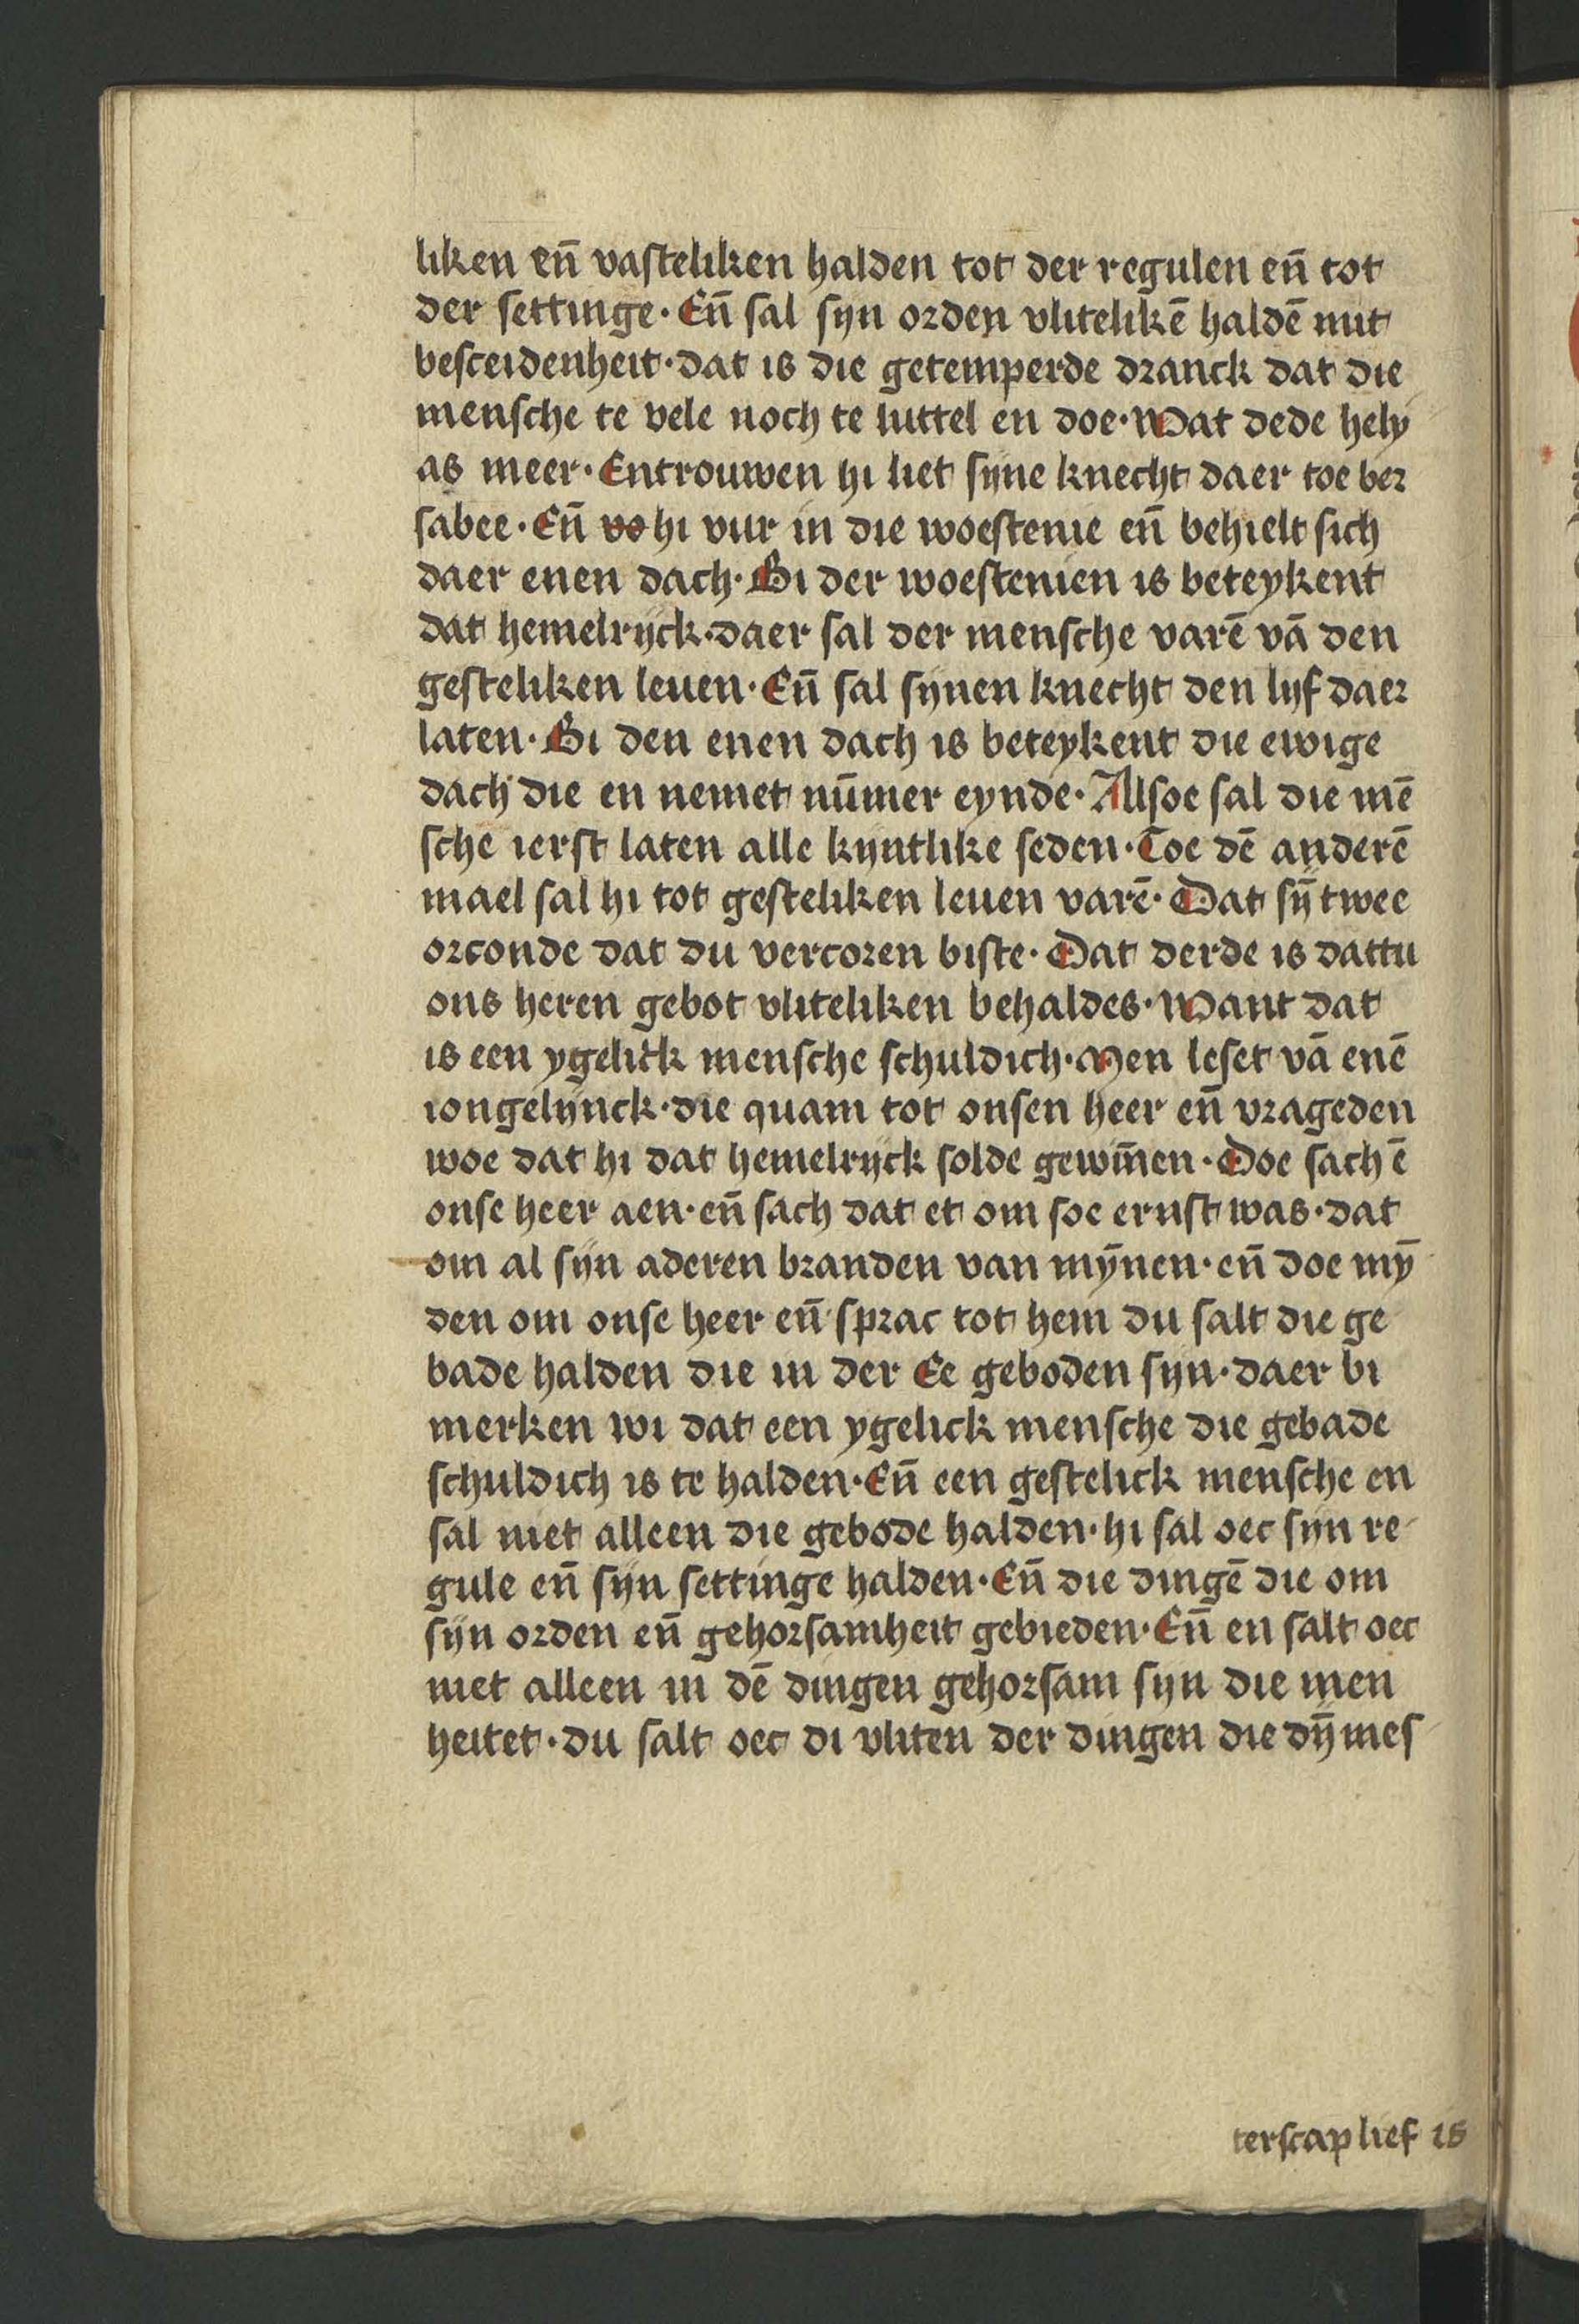 liken en̄ vasteliken halden tot der regulen en̄ tot
der settinge · En̄ sal syn orden vlitelikē haldē mit
besceidenheit · dat is die getemperde dranck dat die
mensche te vele noch te luttel en doe · Wat dede hely
as meer · Entrouwen hi liet syne knecht daer toe ber
sabee · En̄ vo hi vur in die woestenie en̄ behielt sich
daer enen dach · Bi der woestenien is beteykent
dat hemelrijck · daer sal der mensche varē vā den
gesteliken leuen · En̄ sal sijnen knecht den lijf daer
laten · Bi den enen dach is beteykent die ewige
dach die en nemet nūmer eynde · Allsoe sal die mē
sche ierst laten alle kijntlike seden · Toe dē anderē
mael sal hi tot gesteliken leuen varē · Dat sȳ twee
orconde dat du vercoren biste · Dat derde is dattu
ons heren gebot vliteliken behaldes · Want dat
is een ygelick mensche schuldich · Men leset vā enē
iongelijnck · die quam tot onsen heer en̄ vrageden
woe dat hi dat hemelrijck solde gewin̄en · Doe sach ē
onse heer aen · en̄ sach dat et om soe ernst was · dat
om al sijn aderen branden van mȳnen · en̄ doe mȳ
den om onse heer en̄ sprac tot hem du salt die ge
bade halden die in der Ee geboden sijn · daer bi
merken wi dat een ygelick mensche die gebade
schuldich is te halden · En̄ een gestelick mensche en
sal niet alleen die gebode halden · hi sal oec sijn re
gule en̄ sijn settinge halden · En̄ die dingē die om
sijn orden en̄ gehorsamheit gebieden · En̄ en salt oec
niet alleen in dē dingen gehorsam sijn die men
heitet · du salt oec di vliten der dingen die dȳ mes
terscap lief is